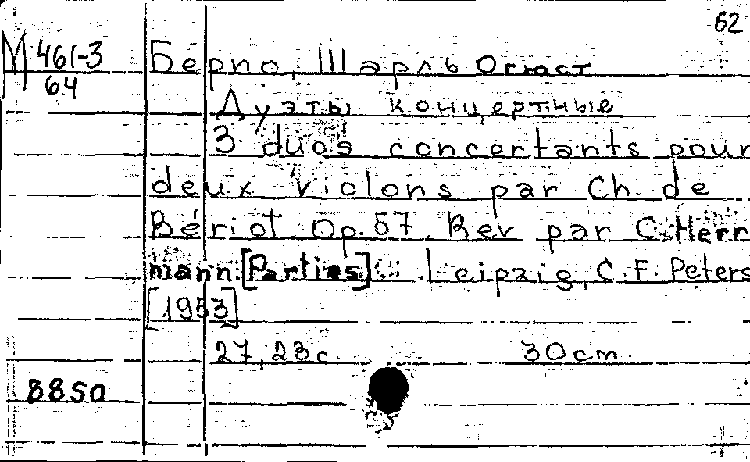 62
М 461-3
64
Берио, Шарль Огюст
Дуэты концертные
3 duos concertants pour
deux violons par Ch. de
Bériot Op. 57. Rev par C. Herr
mann. [Parties]. Leipzig, C. F. Peters
[1953]
27, 23 с. 30 cm.
8850